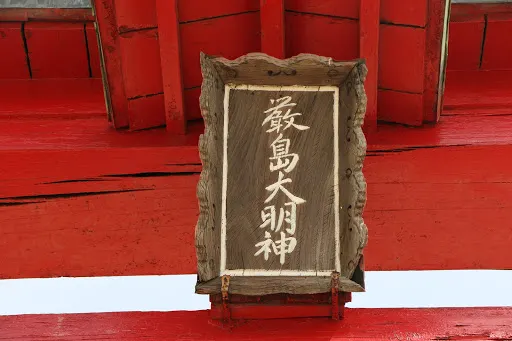 厳島大明神